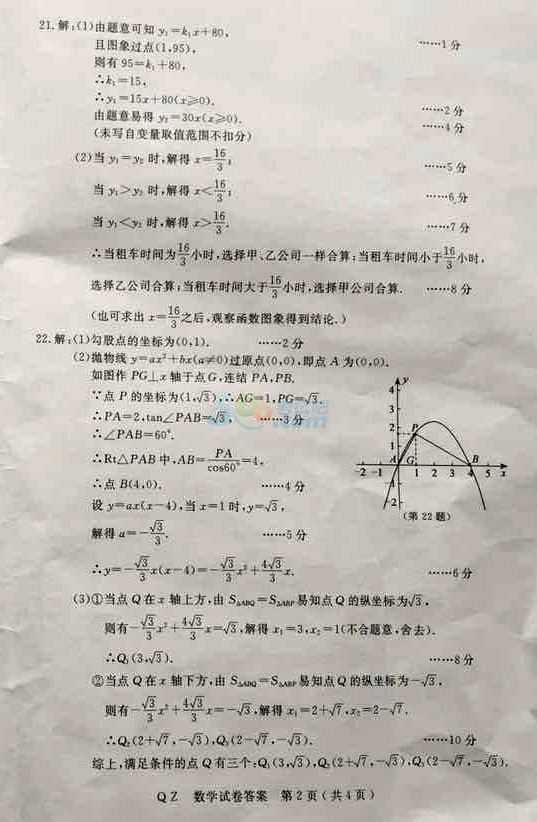 21.解:(1)由题意可知 y₁=k₁x+80,
且图象过点(1,95), ……1分
则有 95=k₁+80,
∴k₁=15,
∴y₁=15x+80(x≥0). ……2分
由题意易得 y₂=30x(x≥0). ……4分
(未写自变量取值范围不扣分)
(2)当 y₁=y₂ 时,解得 x=16/3; ……5分
当 y₁>y₂ 时,解得 x<16/3; ……6分
当 y₁<y₂ 时,解得 x>16/3. ……7分
∴当租车时间为16/3小时,选择甲、乙公司一样合算;当租车时间小于16/3小时,
选择乙公司合算;当租车时间大于16/3小时,选择甲公司合算. ……8分
(也可求出 x=16/3之后,观察函数图象得到结论.)
22.解:(1)勾股点的坐标为(0,1). ……2分
(2)抛物线 y=ax²+bx(a≠0)过原点(0,0),即点 A 为(0,0).
如图作 PG⊥x 轴于点 G,连结 PA,PB.
∵点 P 的坐标为(1,√3),∴AG=1,PG=√3,
∴PA=2,tan∠PAB=√3, ……3分
∴∠PAB=60°,
∴Rt△PAB 中,AB=PA/cos60°=4,
∴点 B(4,0). ……4分
设 y=ax(x-4),当 x=1 时,y=√3,
解得 a=-√3/3. ……5分
∴y=-√3/3x(x-4)=-√3/3x²+4√3/3x. ……6分
y
4
3
2
1
P
A
G
B
-2 -1 1 2 3 4 5 x
-1
-2
(第 22 题)
(3)①当点 Q 在 x 轴上方,由 S△ABQ=S△ABP易知点 Q 的纵坐标为√3,
则有-√3/3x²+4√3/3x=√3,解得 x₁=3,x₂=1(不合题意,舍去).
∴Q₁(3,√3). ……8分
②当点 Q 在 x 轴下方,由 S△ABQ=S△ABP易知点 Q 的纵坐标为-√3,
则有-√3/3x²+4√3/3x=-√3,解得 x₁=2+√7,x₂=2-√7.
∴Q₂(2+√7,-√3),Q₃(2-√7,-√3). ……10分
综上,满足条件的点 Q 有三个:Q₁(3,√3),Q₂(2+√7,-√3),Q₃(2-√7,-√3).
QZ 数学试卷答案 第2页(共4页)